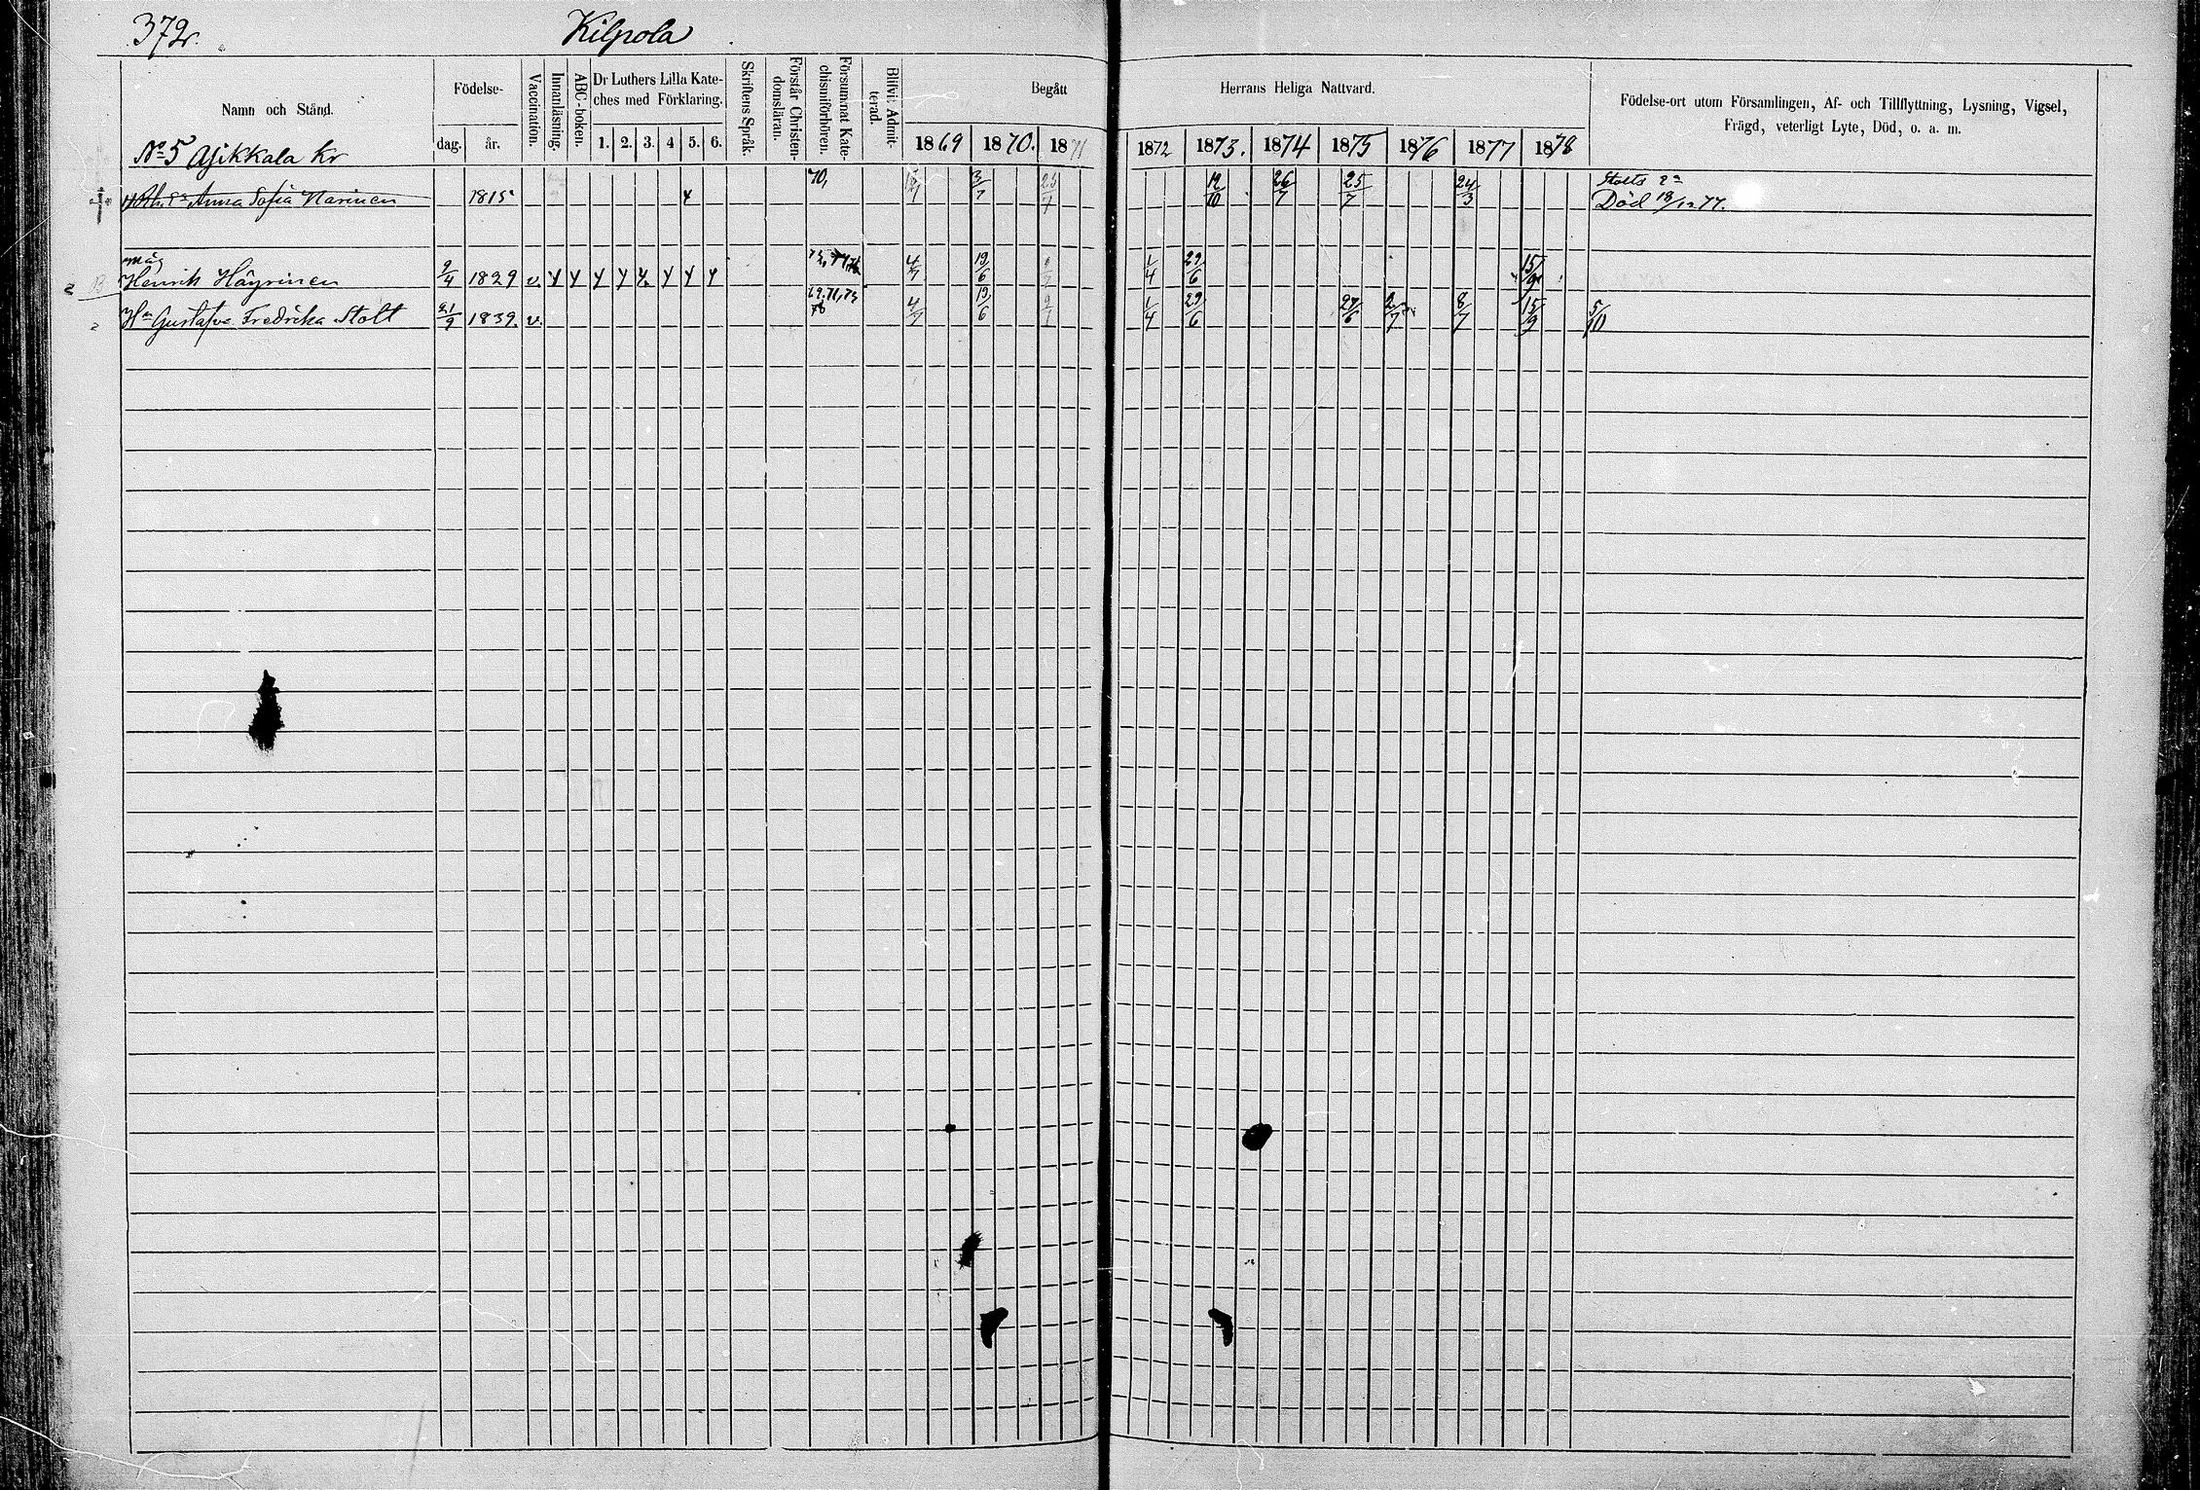 372.
Kilpola
Namn och Stånd.
Födelse-
dag.
år.
Vaccination.
Innanläsning.
ABC-boken.
Dr Luthers Lilla Kate-
ches med Förklaring.
1. 2. 3. 4 5. 6.
Skriftens Språk.
Förstår Christen-
domsläran.
Försummat Kate-
chismiförhören.
Blifvit Admit-
terad.
Begått
Herrans Heliga Nattvard.
1869 1870. 1871 1872 1873. 1874 1875 1876 1877 1878
Födelse-ort utom Församlingen, Af- och Tillflyttning, Lysning, Vigsel,
Frägd, veterligt Lyte, Död, o. a. m.
No 5 kr
Anna Sofia 1815 70, 3/7 12/10 26/7 25/7 24/3 Stolts
Död 77.
måg
Henrik Häyrinen 9/4 1829 v. 4/7 19/6 1/4 29/6 15/9
Hu Gustafva Fredrika Stolt 21/9 1839. v. 69.71,73 78 4/7 19/6 1/4 29/6 27/6 2/7 8/7 15/9 5/10